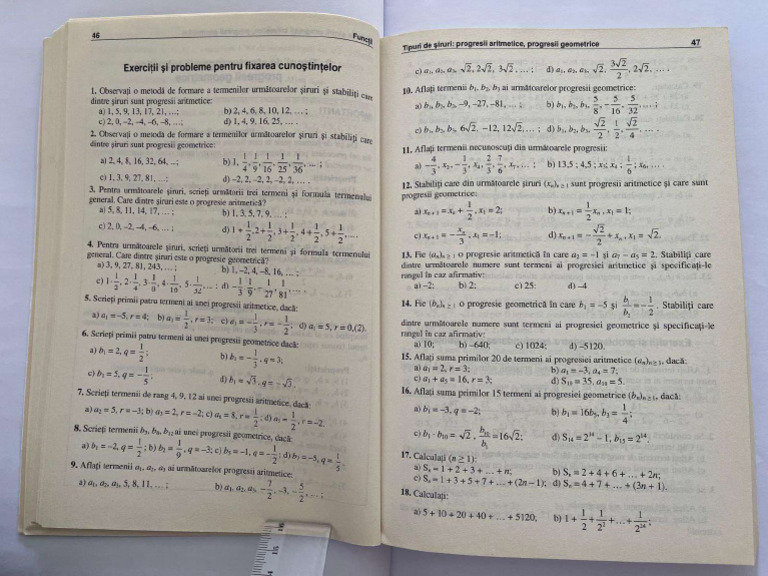 46
Funcții
Exerciții și probleme pentru fixarea cunoștințelor
1. Observați o metodă de formare a termenilor următoarelor șiruri și stabiliți care
dintre șiruri sunt progresii aritmetice:
a) 1, 5, 9, 13, 17, 21, ...; b) 2, 4, 6, 8, 10, 12, ... ;
c) 2, 0, -2, -4, -6, -8, ...; d) 1, 4, 9, 16, 25, ... .
2. Observați o metodă de formare a termenilor următoarelor șiruri și stabiliți care
dintre șiruri sunt progresii geometrice:
a) 2, 4, 8, 16, 32, 64, ...; b) 1, 1/4, 1/9, 1/16, 1/25, 1/36, ... ;
c) 1, 3, 9, 27, 81, ...; d) -2, 2, -2, 2, -2, 2, ... .
3. Pentru următoarele șiruri, scrieți următorii trei termeni și formula termenului
general. Care dintre șiruri este o progresie aritmetică?
a) 5, 8, 11, 14, 17, ... ; b) 1, 3, 5, 7, 9, ... ;
c) 2, 0, -2, -4, -6, ... ; d) 1 + 1/2, 2 + 1/2, 3 + 1/2, 4 + 1/2, 5 + 1/2, ... .
4. Pentru următoarele șiruri, scrieți următorii trei termeni și formula termenului
general. Care dintre șiruri este o progresie geometrică?
a) 3, 9, 27, 81, 243, ... ; b) 1, -2, 4, -8, 16, ... ;
c) 1·1/2, 2·1/4, 3·1/8, 4·1/16, 5·1/32, ... ; d) -1, 1/3, 1/9, -1/27, 1/81, ...
5. Scrieți primii patru termeni ai unei progresii aritmetice, dacă:
a) a₁ = -5, r = 4; b) a₁ = 1/2, r = 3; c) a₁ = -1/3, r = -1/2; d) a₁ = 5, r = 0,(2).
6. Scrieți primii patru termeni ai unei progresii geometrice dacă:
a) b₁ = 2, q = 1/2; b) b₁ = -1/3, q = 3;
c) b₁ = 5, q = -1/5; d) b₁ = √3, q = -√3.
7. Scrieți termenii de rang 4, 9, 12 ai unei progresii aritmetice, dacă:
a) a₂ = 5, r = -3; b) a₃ = 2, r = -2; c) a₆ = 8, r = 1/2; d) a₅ = 1/2, r = -2
8. Scrieți termenii b₃, b₈, b₁₂ ai unei progresii geometrice, dacă:
a) b₁ = -2, q = 1/2; b) b₂ = 1/9, q = -3; c) b₃ = -1, q = -1/2; d) b₂ = -5, q = 1/5
9. Aflați termenii a₁, a₂, a₃ ai următoarelor progresii aritmetice:
a) a₁, a₂, a₃, 5, 8, 11, ... ; b) a₁, a₂, a₃, -7/2, -3, -5/2, ... ;
Tipuri de șiruri: progresii aritmetice, progresii geometrice
47
c) a₁, a₂, a₃, √2, 2√2, 3√2, ... ; d) a₁, a₂, a₃, √2, 3√2/2, 2√2, ... .
10. Aflați termenii b₁, b₂, b₃ ai următoarelor progresii geometrice:
a) b₁, b₂, b₃, -9, -27, -81, ... ; b) b₁, b₂, b₃, 5/8, -5/16, 5/32, ... ;
c) b₁, b₂, b₃, 6√2, -12, 12√2, ... ; d) b₁, b₂, b₃, √2/2, 1/2, √2/4, ... .
11. Aflați termenii necunoscuți din următoarele progresii:
a) -4/3, x₂, -1/3, x₄, 2/3, 7/6, x₇, ... ; b) 13,5 ; 4,5 ; x₃; x₄ ; 1/6 ; x₆, ... .
12. Stabiliți care din următoarele șiruri (xₙ)ₙ ≥ ₁ sunt progresii aritmetice și care sunt
progresii geometrice:
a) xₙ₊₁ = xₙ + 1/2, x₁ = 2; b) xₙ₊₁ = 1/2 xₙ, x₁ = 1;
c) xₙ₊₁ = -xₙ/3, x₁ = -1; d) xₙ₊₁ = -√2/2 + xₙ, x₁ = √2.
13. Fie (aₙ)ₙ ≥ ₁ o progresie aritmetică în care a₂ = -1 și a₇ - a₅ = 2. Stabiliți care
dintre următoarele numere sunt termeni ai progresiei aritmetice și specificați-le
rangul în caz afirmativ:
a) -2; b) 2; c) 25; d) -4
14. Fie (bₙ)ₙ ≥ ₁ o progresie geometrică în care b₁ = -5 și = -1/2. Stabiliți care
dintre următoarele numere sunt termeni ai progresiei geometrice și specificați-le
rangul în caz afirmativ:
a) 10; b) -640; c) 1024; d) -5120.
15. Aflați suma primilor 20 de termeni ai progresiei aritmetice (aₙ)ₙ≥₁, dacă:
a) a₁ = 2, r = 3; b) a₁ = -3, a₄ = 7;
c) a₁ + a₅ = 16, r = 3; d) S₁₀ = 35, a₁₀ = 5.
16. Aflați suma primilor 15 termeni ai progresiei geometrice (bₙ)ₙ≥₁, dacă:
a) b₁ = -3, q = -2; b) b₁ = 16b₅, b₃ = 1/4;
c) b₁ · b₁₀ = √2, b₁₀/b₁ = 16√2; d) S₁₄ = 2¹⁴ - 1, b₁₅ = 2¹⁴.
17. Calculați (n ≥ 1):
a) Sₙ = 1 + 2 + 3 + ... + n; b) Sₙ = 2 + 4 + 6 + ... + 2n;
c) Sₙ = 1 + 3 + 5 + 7 + ... + (2n - 1); d) Sₙ = 4 + 7 + ... + (3n + 1).
18. Calculați:
a) 5 + 10 + 20 + 40 + ... + 5120; b) 1 + 1/2 + 1/2² + ... + 1/2²⁴;